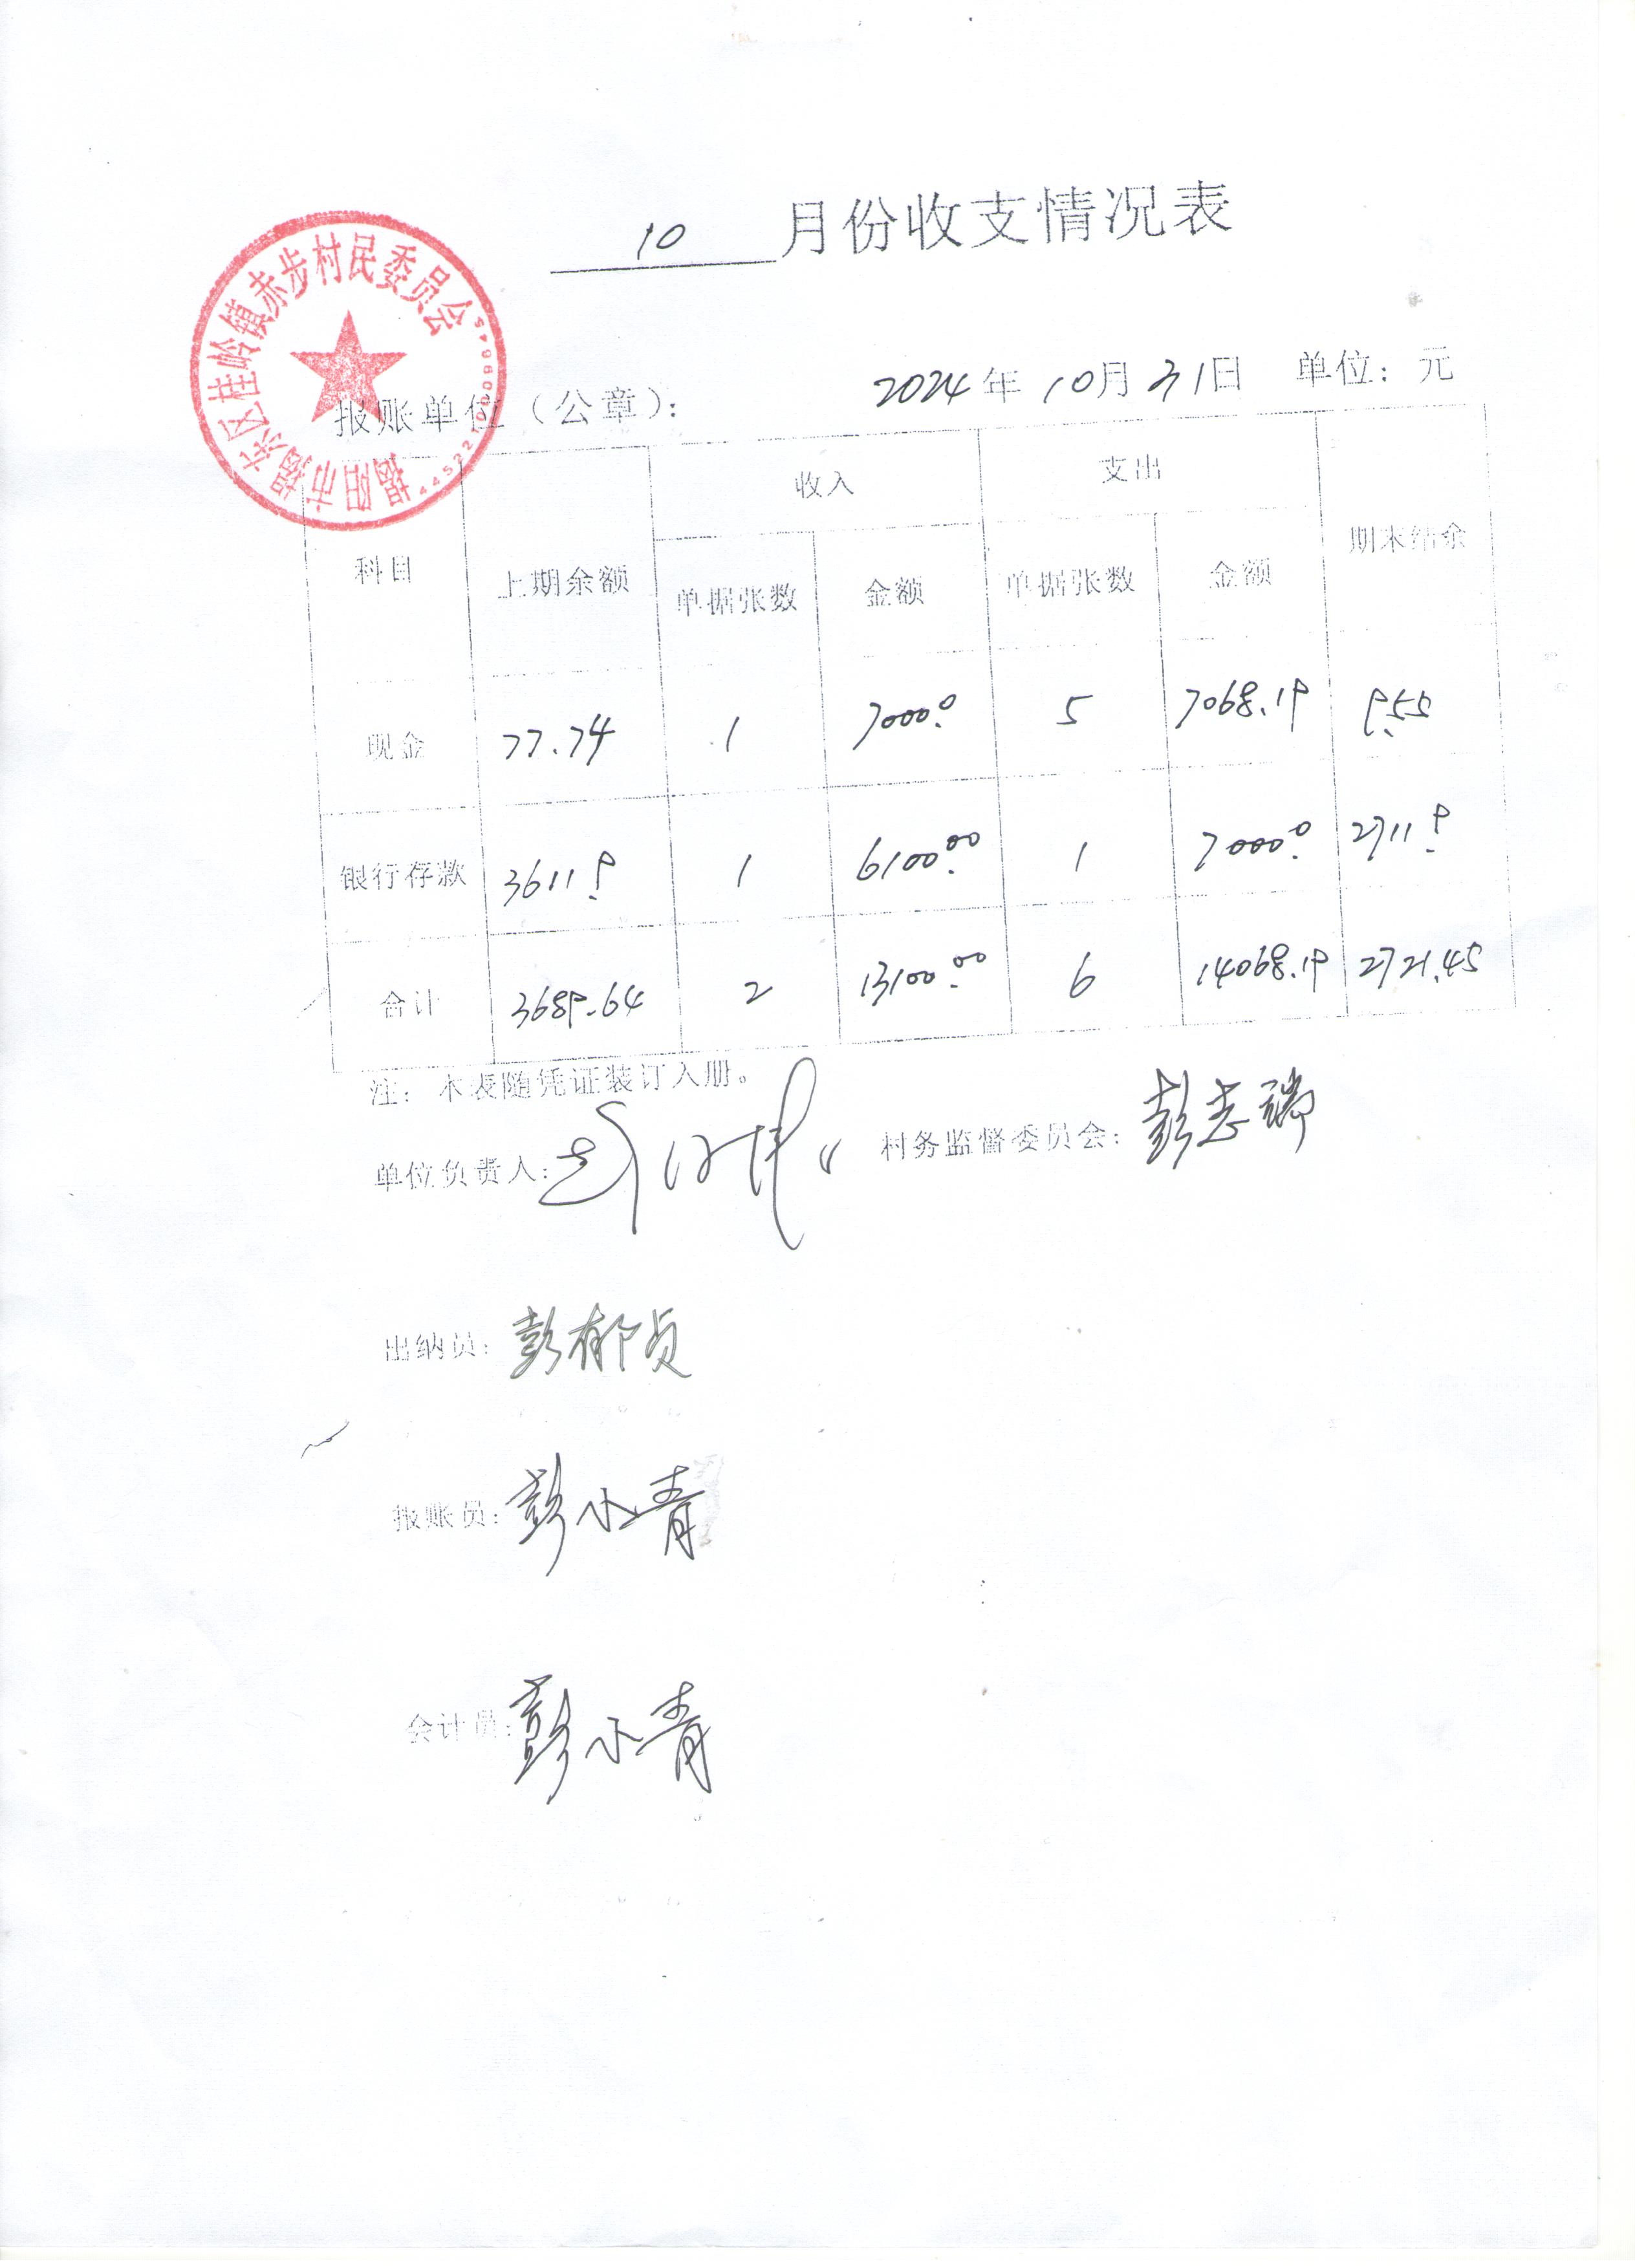 10 月份收支情况表
揭阳市揭东区桂岭镇赤步村民委员会
报账单位(公章): 2024年10月31日 单位:元
科目 上期余额 收入 支出 期末结余
单据张数 金额 单据张数 金额
现金 77.74 1 7000.0 5 7068.19 9.55
银行存款 3611.9 1 6100.00 1 7000.0 2711.9
合计 3689.64 2 13100.00 6 14068.19 2721.45
注:本表随凭证装订入册。
单位负责人: 村务监督委员会:彭志瑞
出纳员:彭郁贞
报账员:彭小青
会计员:彭小青